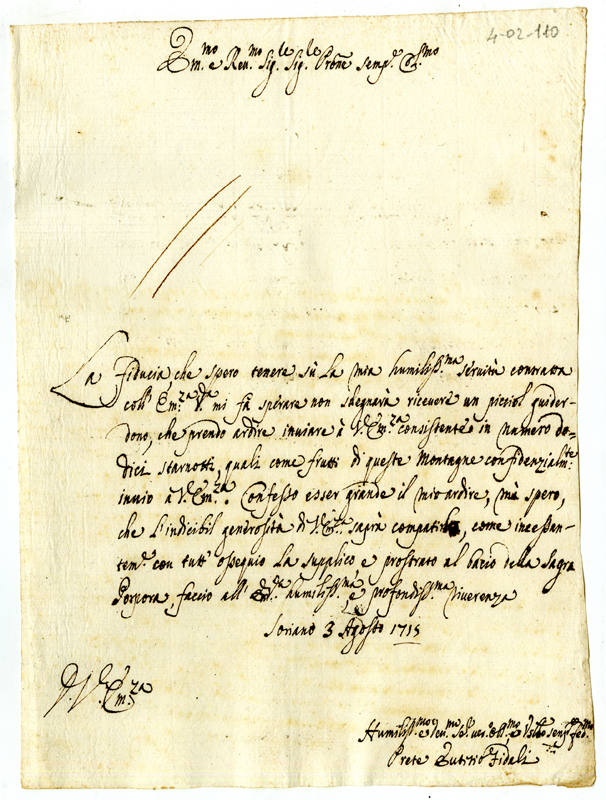 4-02-110
Em.mo e Rev.mo Sig.re Sig.re Prõne Semp.e Col.mo
La Fiducia, che spero tenere sù la mia humiliss.ma servità contratta
coll' Em.za V.ra mi fà sperare non sdegnarà ricevere un picciol guider-
dono, che prendo ardire inviare à V. Em.za consistente in numero do-
dici starnotti, quali come frutti di queste Montagne confidenzialm.te
invio à V. Em.za. Confesso esser grande il mio ardire, mà spero,
che l'indicibil generosità di V. Em.za saprà compatirlo, come incessan-
tem.e con tutt' ossequio la supplico e prostrato al bacio della Sagra
Porpora, faccio all' Em.V. humiliss.ma, e profondiss.ma riverenza
Soriano 3 Agosto 1715
D. V. Em.za
Humiliss.mo e Dev.mo Ser.
Prete Fidali